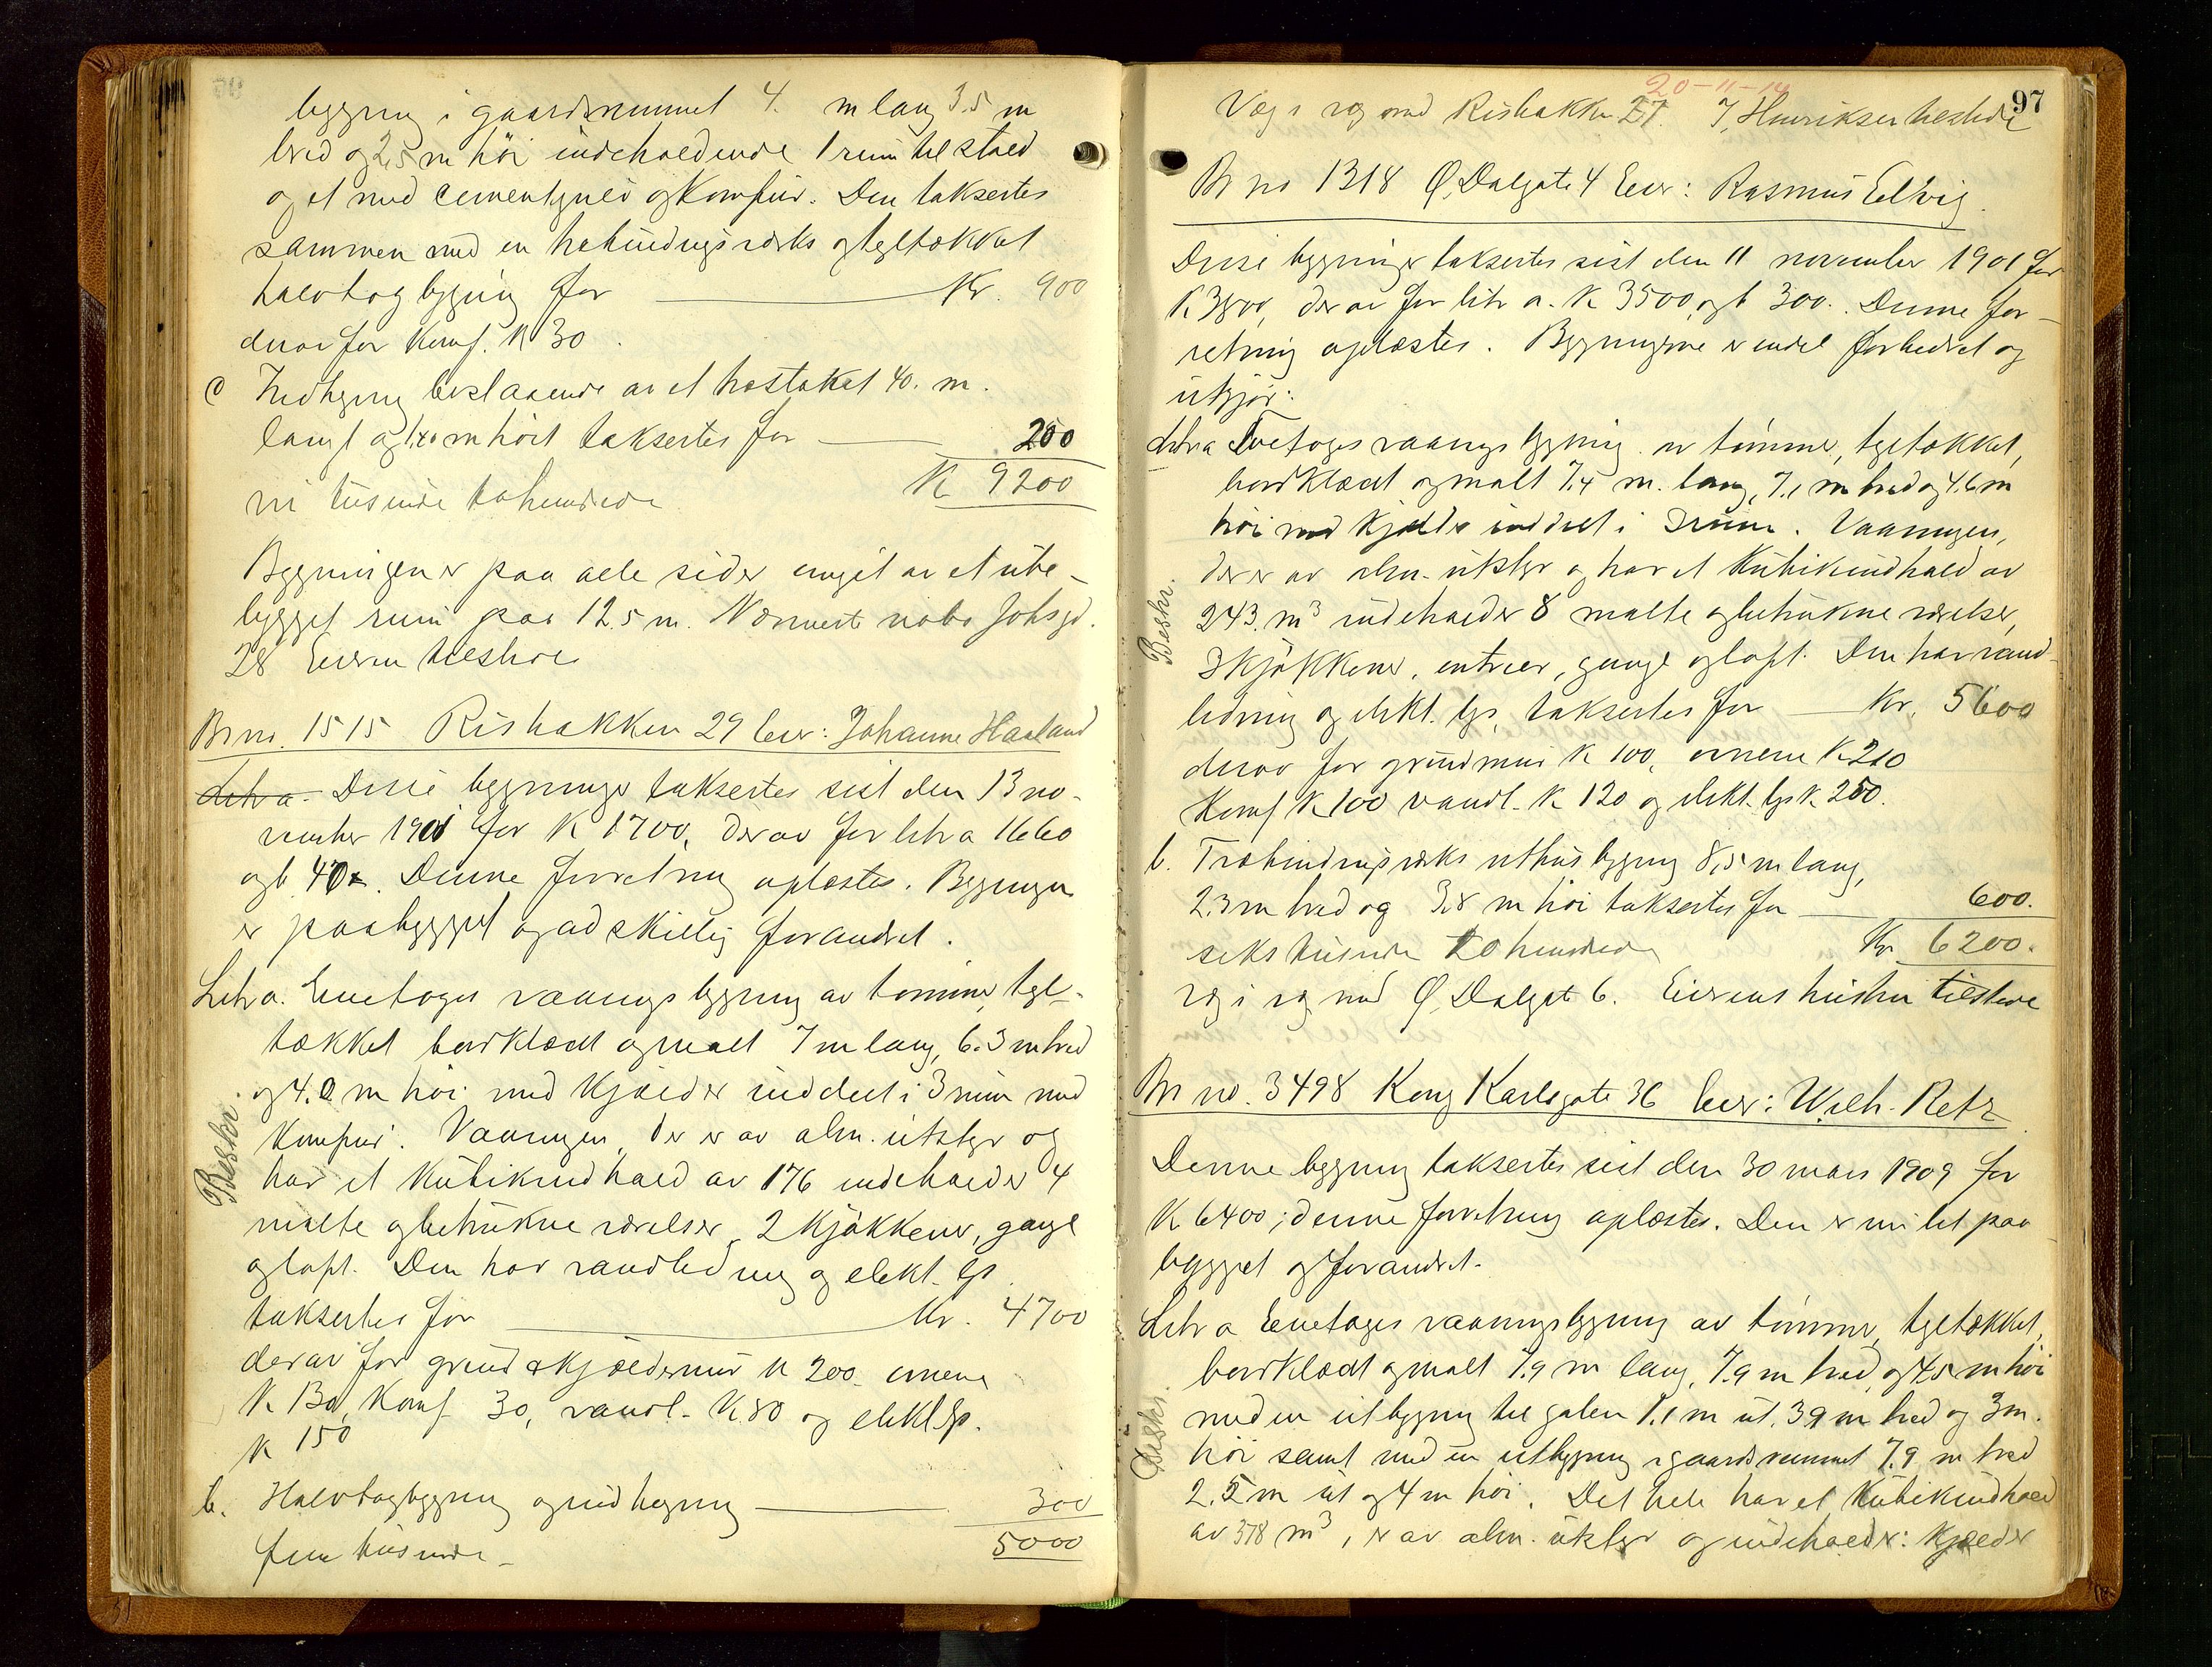 bygning i gaardsrummet 4. m lang 3.5 m
bred og 2,5 m høi indeholdende 1 rum til stald
og et med cementgulv og Komfur. Den taksertes
sammen med en trebindingsverks og tegltækket
halvtagbygning for Kr. 900
derav for Komf. K 30.
c Indhegning bestaaende av et 40. m.
langt og m høit taksertes for 200
ni tusinde tohundrede K 9200
Bygningen er paa alle sider omgit av et ube-
bygget rum paa 12.5 m. Nærmeste nabo Johsgd.
28 Eieren tilstede
Br no. 1515 Risbakken 29 Eier: Johanne Haaland
Disse bygninger taksertes sist den 13 no-
vember 1901 for K 1700, derav for litr a 1660
og b 40. Denne forretning oplæstes. Bygningen
er paabygget og adskillig forandret.
Litr a. Enetages vaaningsbygning av tømmer, tegl-
tækket bordklædt og malt 7 m lang, 6.3 m bred
og 4.0 m høi med Kjælder inddelt i 3 rum med
Komfur. Vaaningen, der er av alm. utstyr og
har et Kubikindhold av 176 indeholder 4
malte og betrukne værelser, 2 Kjøkkener, gange
og loft. Den har vandledning og elekt. lys
taksertes for Kr. 4700
derav for grund & Kjældermur K 200. ovnene
K 130, Komf 30, vandl. K 80 og elekt lys.
K 150
Beskr.
b. Halvtagbygning og indhegning 300
fem tusinde 5000
20-11-14
97
Væg i væg med Risbakken 27. J. Henriksen tilstede
Br no 1318 Ø. Dalgate 4 Eier: Rasmus Eelvig.
Disse bygninger taksertes sist den 11 november 1901 for
K 3800, derav for litr a. K 3500, og b 300. Denne for-
retning oplæstes. Bygningerne er endel forbedret og
utgjør:
Litr a Toetages vaaningsbygning av tømmer, tegltækket,
bordklædt og malt 7.4 m. lang, 7.1 m bred og 4.6 m
høi med Kjælder inddelt i 3 rum. Vaaningen,
der er av alm. utstyr og har et Kubikindhold av
243. m³ indeholder 8 malte og betrukne værelser,
3 Kjøkkener, entreer, gange og loft. Den har vand-
ledning og elekt. lys, taksertes for Kr. 5600
derav for grundmur K 100, ovnene K 210
Komf K 100 vandl. K 120 og elekt. lys K 250.
Beskr.
b. Træbindingsverks uthusbygning 8,5 m lang,
2.3 m bred og 3.8 m høi taksertes for 600.
seks tusinde to hundrede Kr. 6200.
Væg i væg med Ø. Dalgat 6. Eierens hustru tilstede
Br no. 3498 Kong Karlsgate 36 Eier: Wilh. Retz
Denne bygning taksertes sist den 30 mars 1909 for
K 6400; denne forretning oplæstes. Den er nu let paa
bygget og forandret.
Litr a Enetages vaaningsbygning av tømmer, tegltækket,
bordklædt og malt 7.9 m lang, 7.9 m bred, og 4.5 m høi
med en utbygning til gaten 1.1 m ut, 3.9 m bred og 3 m.
høi samt med en utbygning i gaardsrummet 7.9 m bred
2.5 m ut og 4 m høi. Det hele har et Kubikindhold
av 378 m³, er av alm. utstyr og indeholder: Kjælder
Beskr.